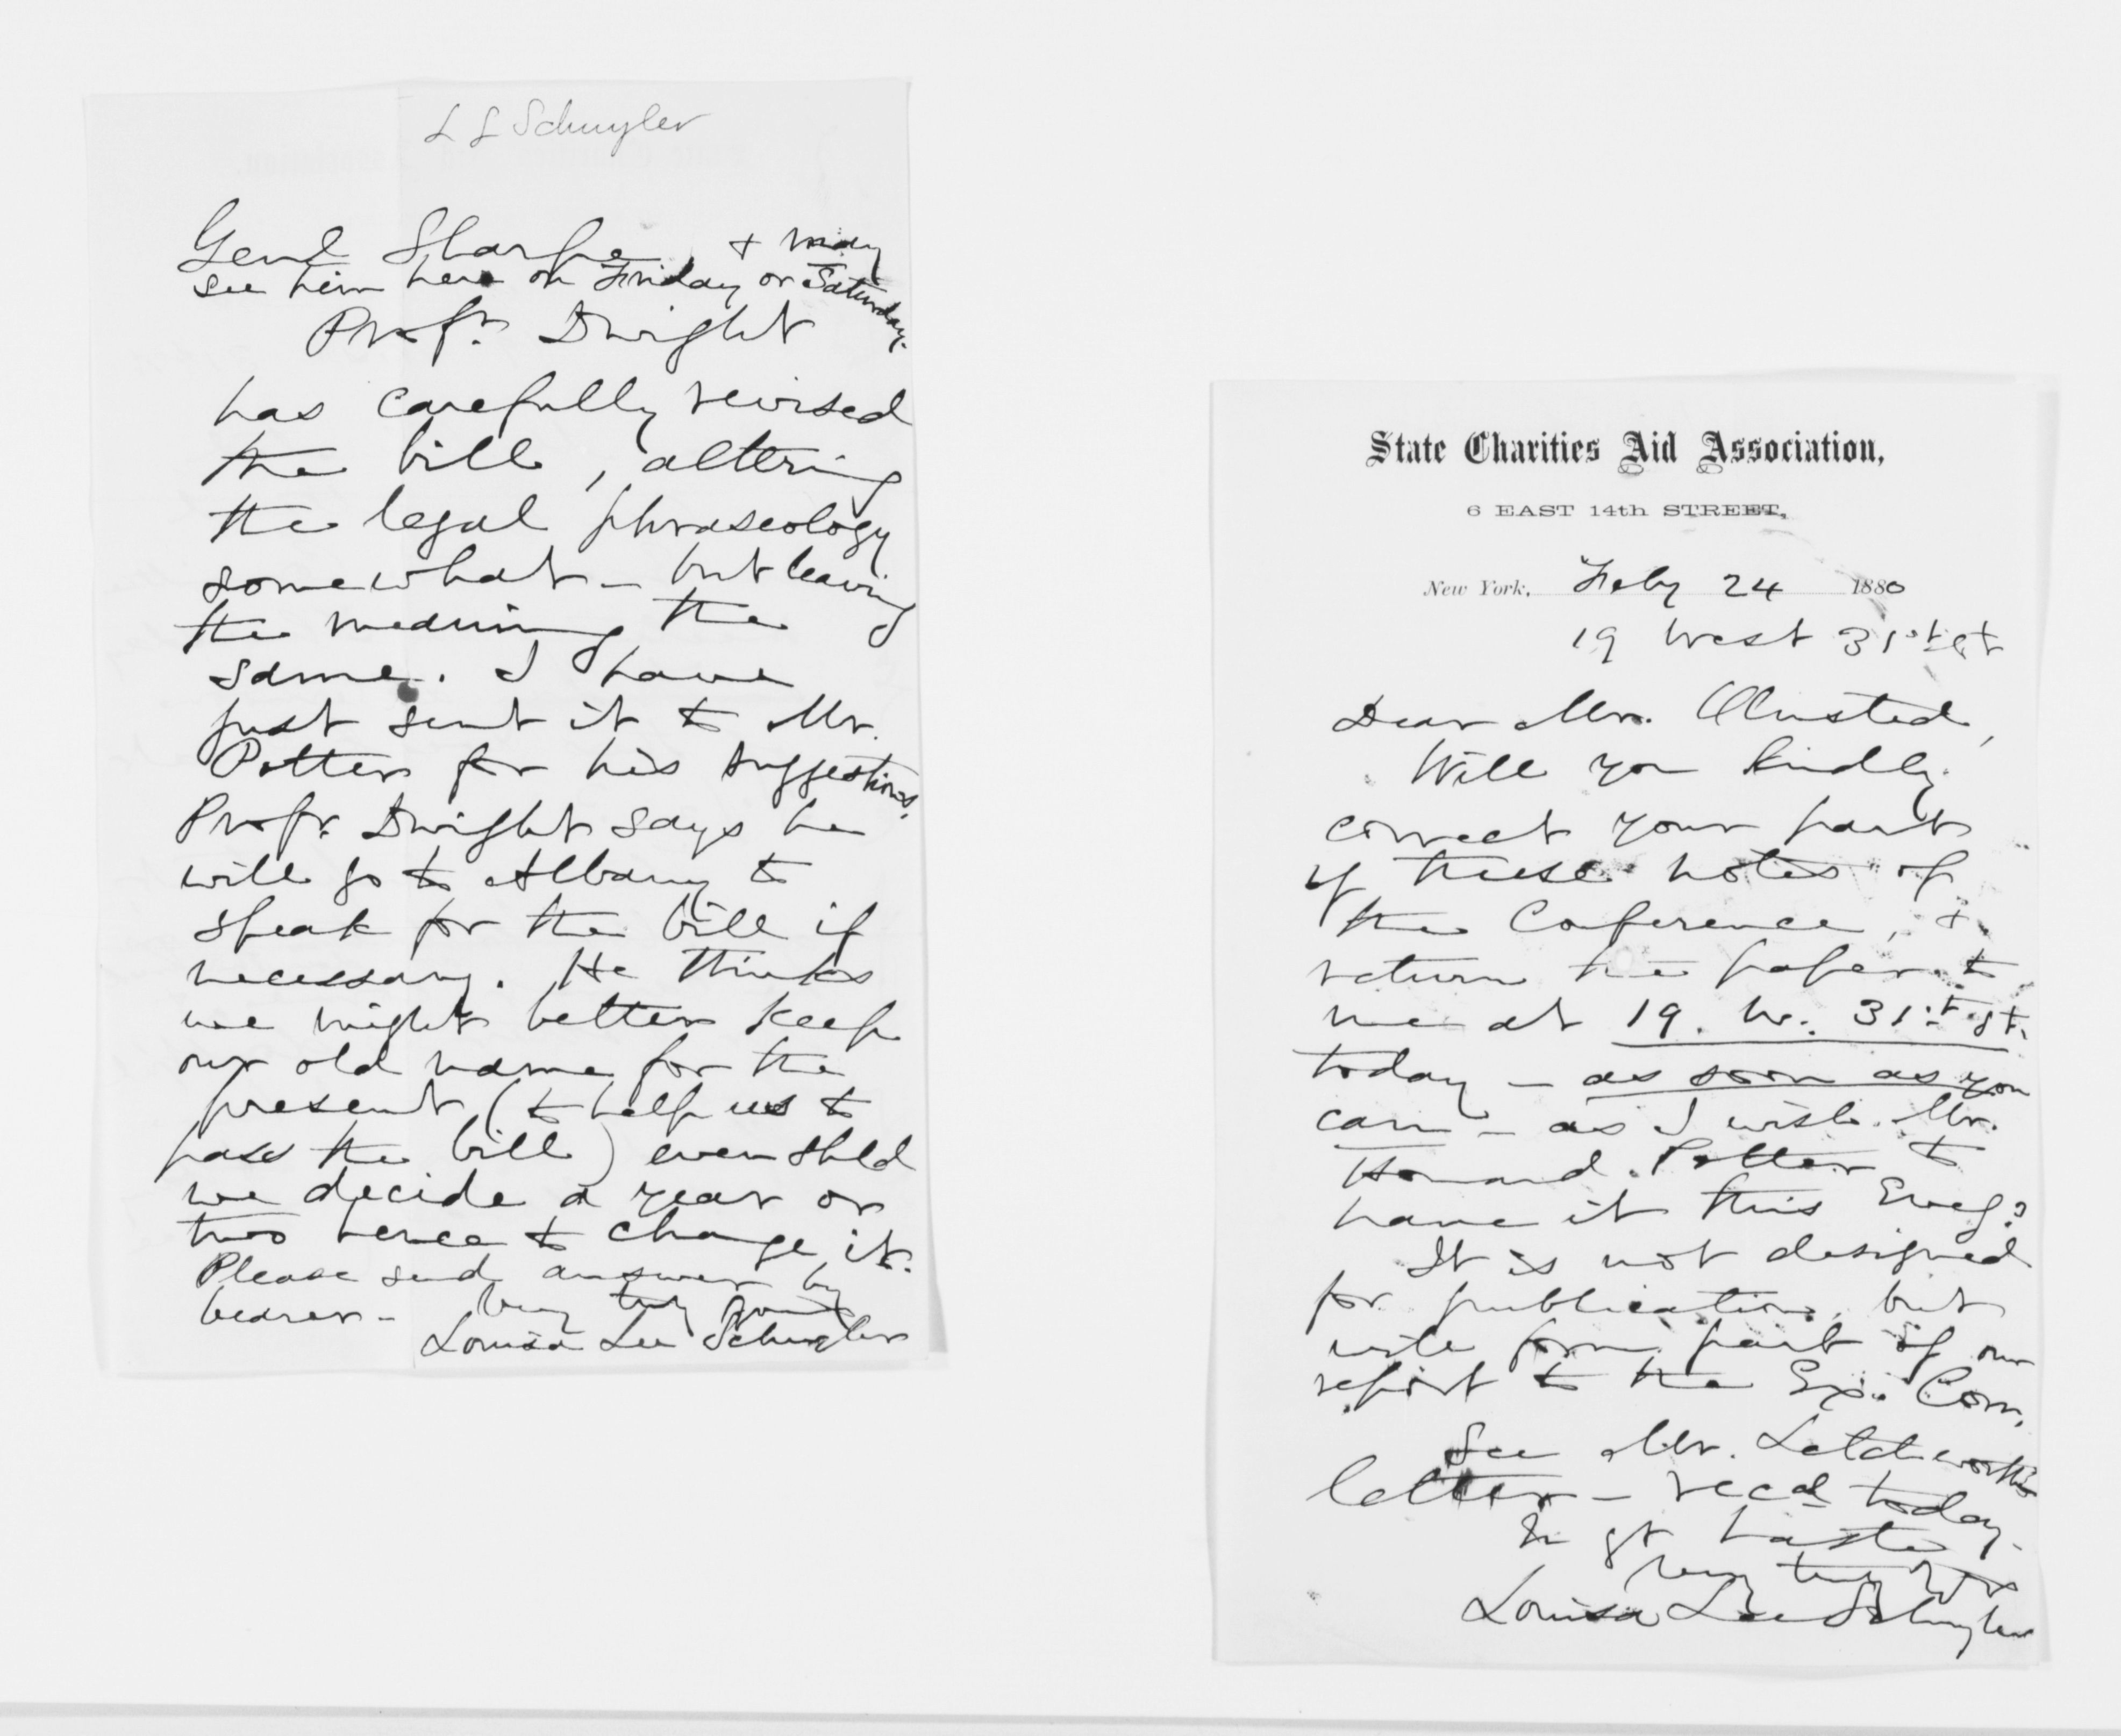 L L Schuyler
Genl Sharpe, & may
see him here on Friday or Saturday.
Profr. Dwight
has carefully revised
the bill, altering
the legal phraseology
somewhat – but leaving
the meaning the
same. I have
just sent it to Mr.
Potter for his suggestions.
Profr. Dwight says he
will go to Albany to
speak for the bill if
necessary. He thinks
we might better keep
our old name for the
present, (to help us to
pass the bill) even shld
we decide a year or
two hence to change it.
Please send answer by
bearer – Very truly yours
Louisa Lee Schuyler
State Charities Aid Association,
6 EAST 14th STREET,
New York, Feby 24 1880
19 West 31st St
Dear Mr. Olmsted,
Will you kindly
correct your part
of these notes of
the Conference, &
return the paper to
me at 19. W. 31st St.
today – as soon as you
can – as I wish Mr.
Howard Potter to
have it this Eveg?
It is not designed
for publication, but
will form part of our
report to the Ex. Com.
See Mr. Letchworth's
letter – recd today.
In gt haste
Very truly yrs
Louisa Lee Schuyler